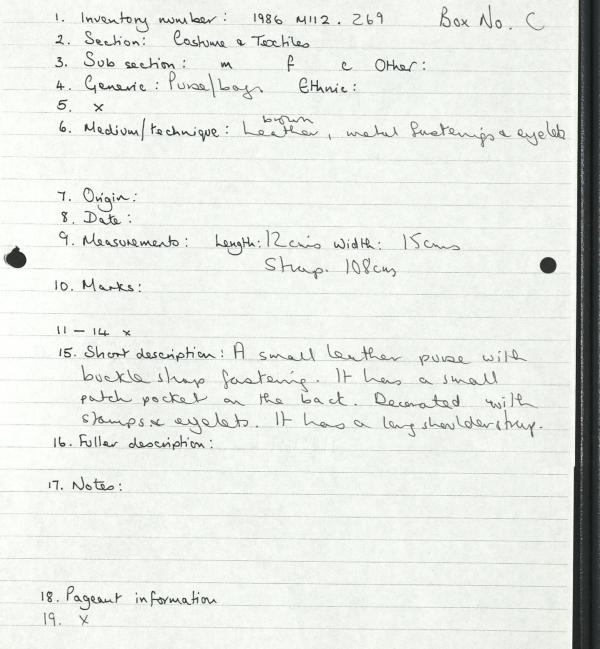 1. Inventory number: 1986 M112.269 Box No. C
2. Section: Costume & Textiles
3. Sub section: m f c Other:
4. Generic: Purse/bag. Ethnic:
5. x
6. Medium/technique: brown Leather, metal fastenings & eyelets
7. Origin:
8. Date:
9. Measurements: Length: 12cms Width: 15cms
Strap. 108cms
10. Marks:
11 – 14 x
15. Short description: A small leather purse with
buckle strap fastening. It has a small
patch pocket on the back. Decorated with
stamps & eyelets. It has a long shoulder strap.
16. Fuller description:
17. Notes:
18. Pageant information
19. x